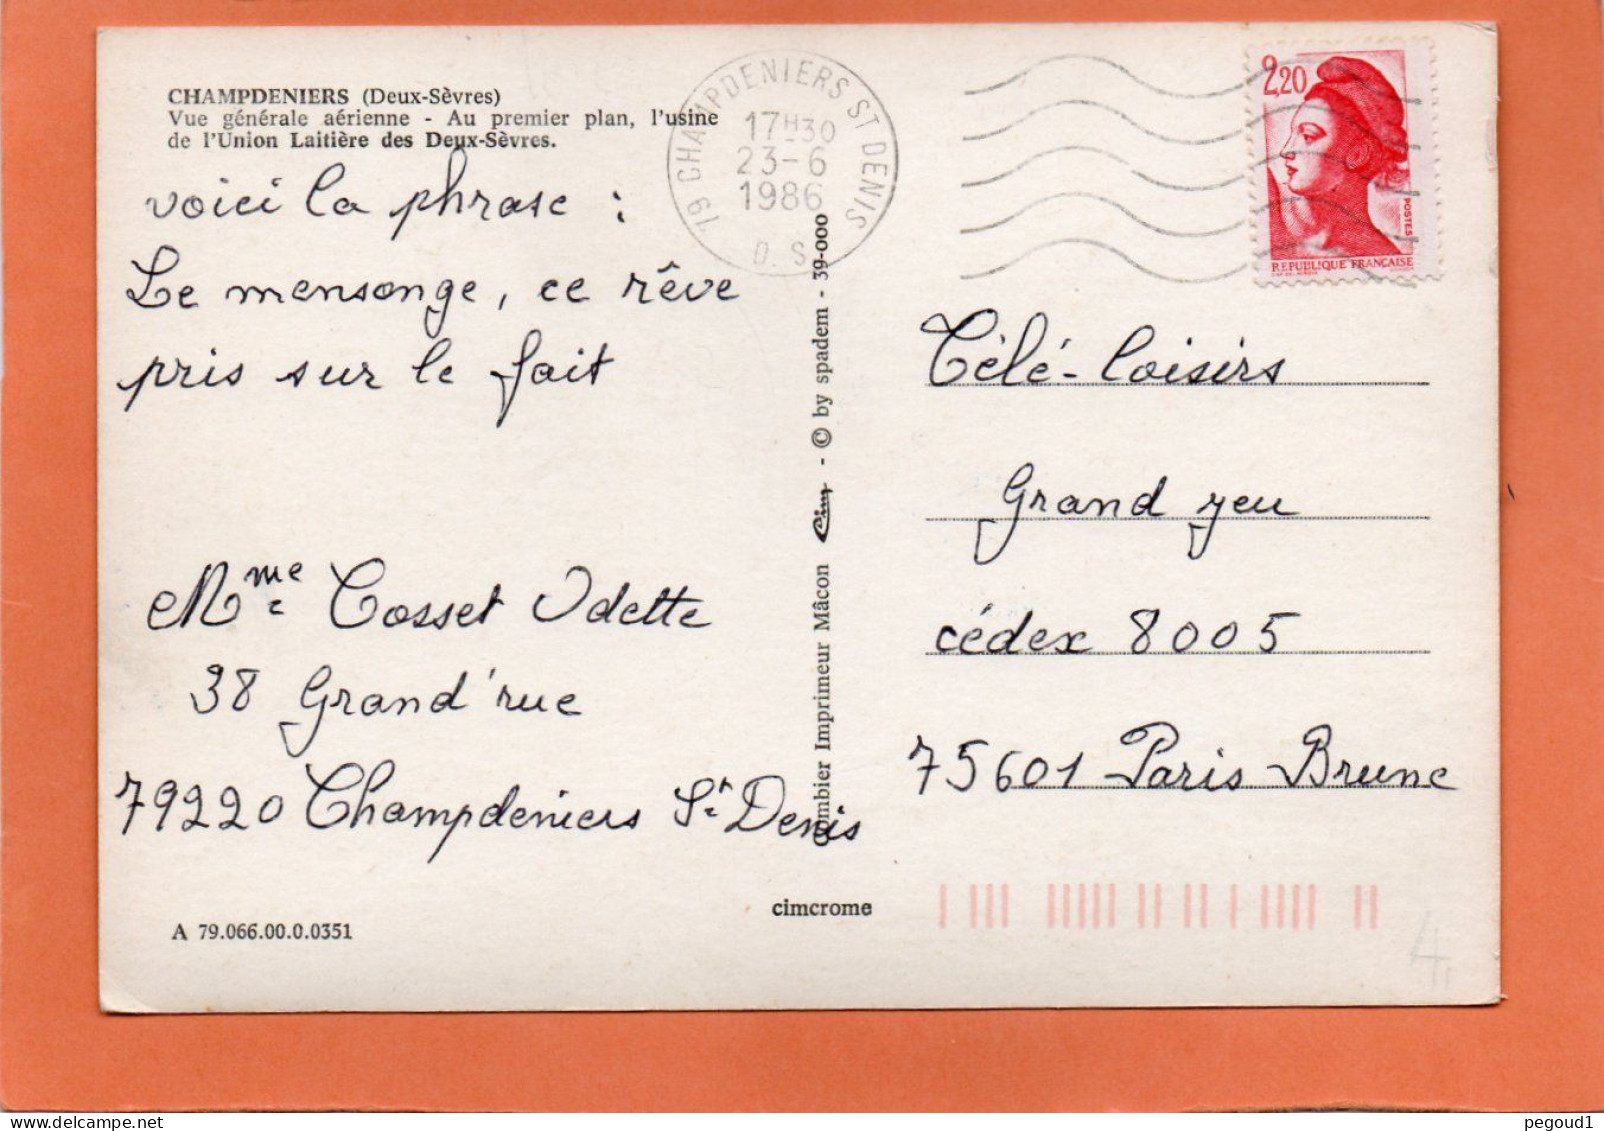 CHAMPDENIERS (Deux-Sèvres)
Vue générale aérienne - Au premier plan, l'usine
de l'Union Laitière des Deux-Sèvres.
voici la phrase :
Le mensonge, ce rêve
pris sur le fait
Mme Cosset Odette
38 Grand'rue
79220 Champdeniers St Denis
A 79.066.00.0.0351
cimcrome
Combier Imprimeur Mâcon Cim - © by spadem - 39-000
19 CHAMPDENIERS ST DENIS
17H30
23-6
1986
D. S.
2,20
POSTES
REPUBLIQUE FRANÇAISE
Télé-Loisirs
Grand jeu
cédex 8005
75601 Paris Brune
4
pegoud1